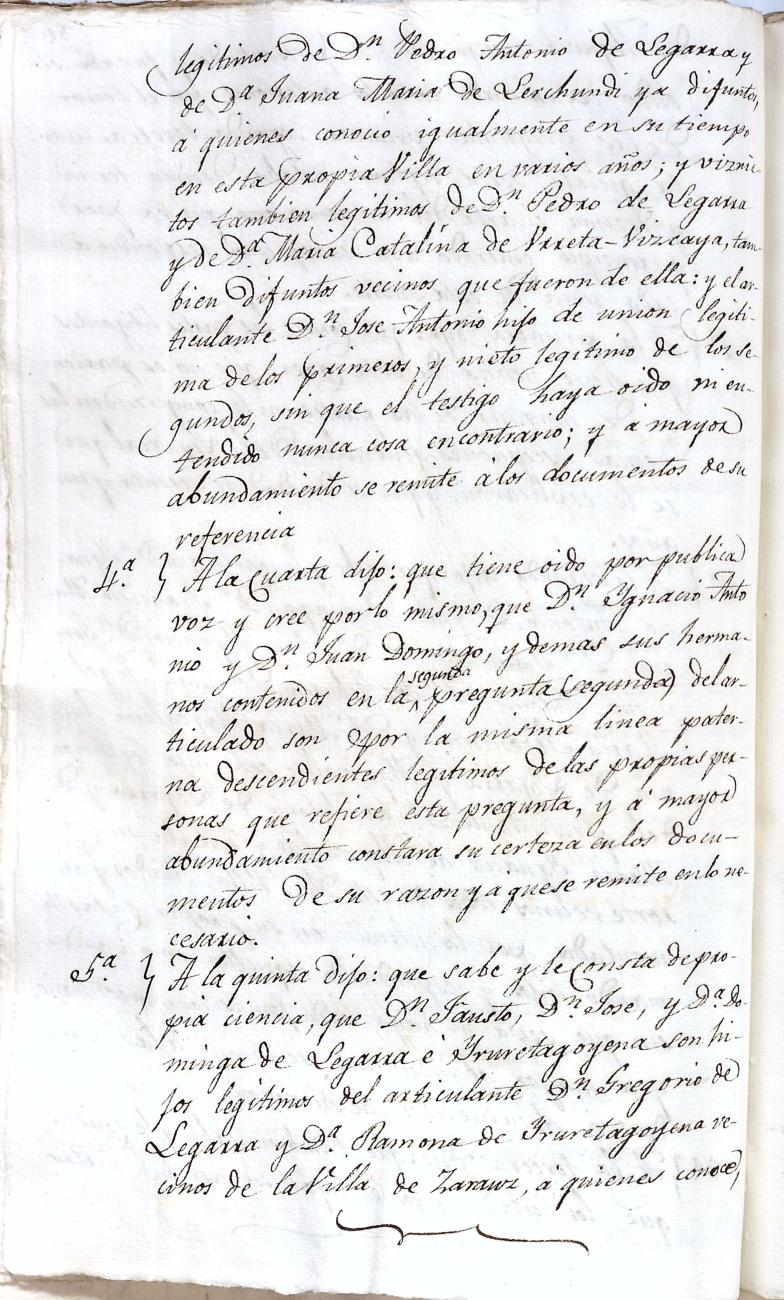 legitimos de Dn. Pedro Antonio de Legarra y
de Da Juana Maria de Lerchundi ya difuntos,
á quienes conocio igualmente en su tiempo
en esta propia Villa en varios años; y viznie-
tos tambien legitimos de Dn. Pedro de Legarra
y de Da Maria Catalína de Vrreta-Vizcaya, tam-
bien difuntos vecinos que fueron de ella: y el ar-
ticulante Dn. Jose Antonio hijo de union legiti-
ma de los primeros, y nieto legitimo de los se-
gundos, sin que el testigo haya oido ni en-
tendido nunca cosa encontrario; y á mayor
abundamiento se remite á los documentos de su
referencia
4.a } A la Cuarta dijo: que tiene oido por publica
voz y cree por lo mismo, que Dn. Ygnacio Anto
nio y Dn. Juan Domingo, y demas sus herma-
nos contenidos en la segunda pregunta (segunda) del ar-
ticulado son por la misma linea pater-
na descendientes legitimos de las propias per-
sonas que refiere esta pregunta, y á mayor
abundamiento constara su certeza en los docu-
mentos de su razon y á que se remite en lo ne-
cesario.
5.a } A la quinta dijo: que sabe y le Consta de pro-
pia ciencia, que Dn. Fausto, Dn. Jose, y Da. Do-
minga de Legarra é Yruretagoyena son hi-
jos legitimos del articulante Dn. Gregorio de
Legarra y Da. Ramona de Yruretagoyena ve-
cinos de la Villa de Zarauz, á quienes conoce,